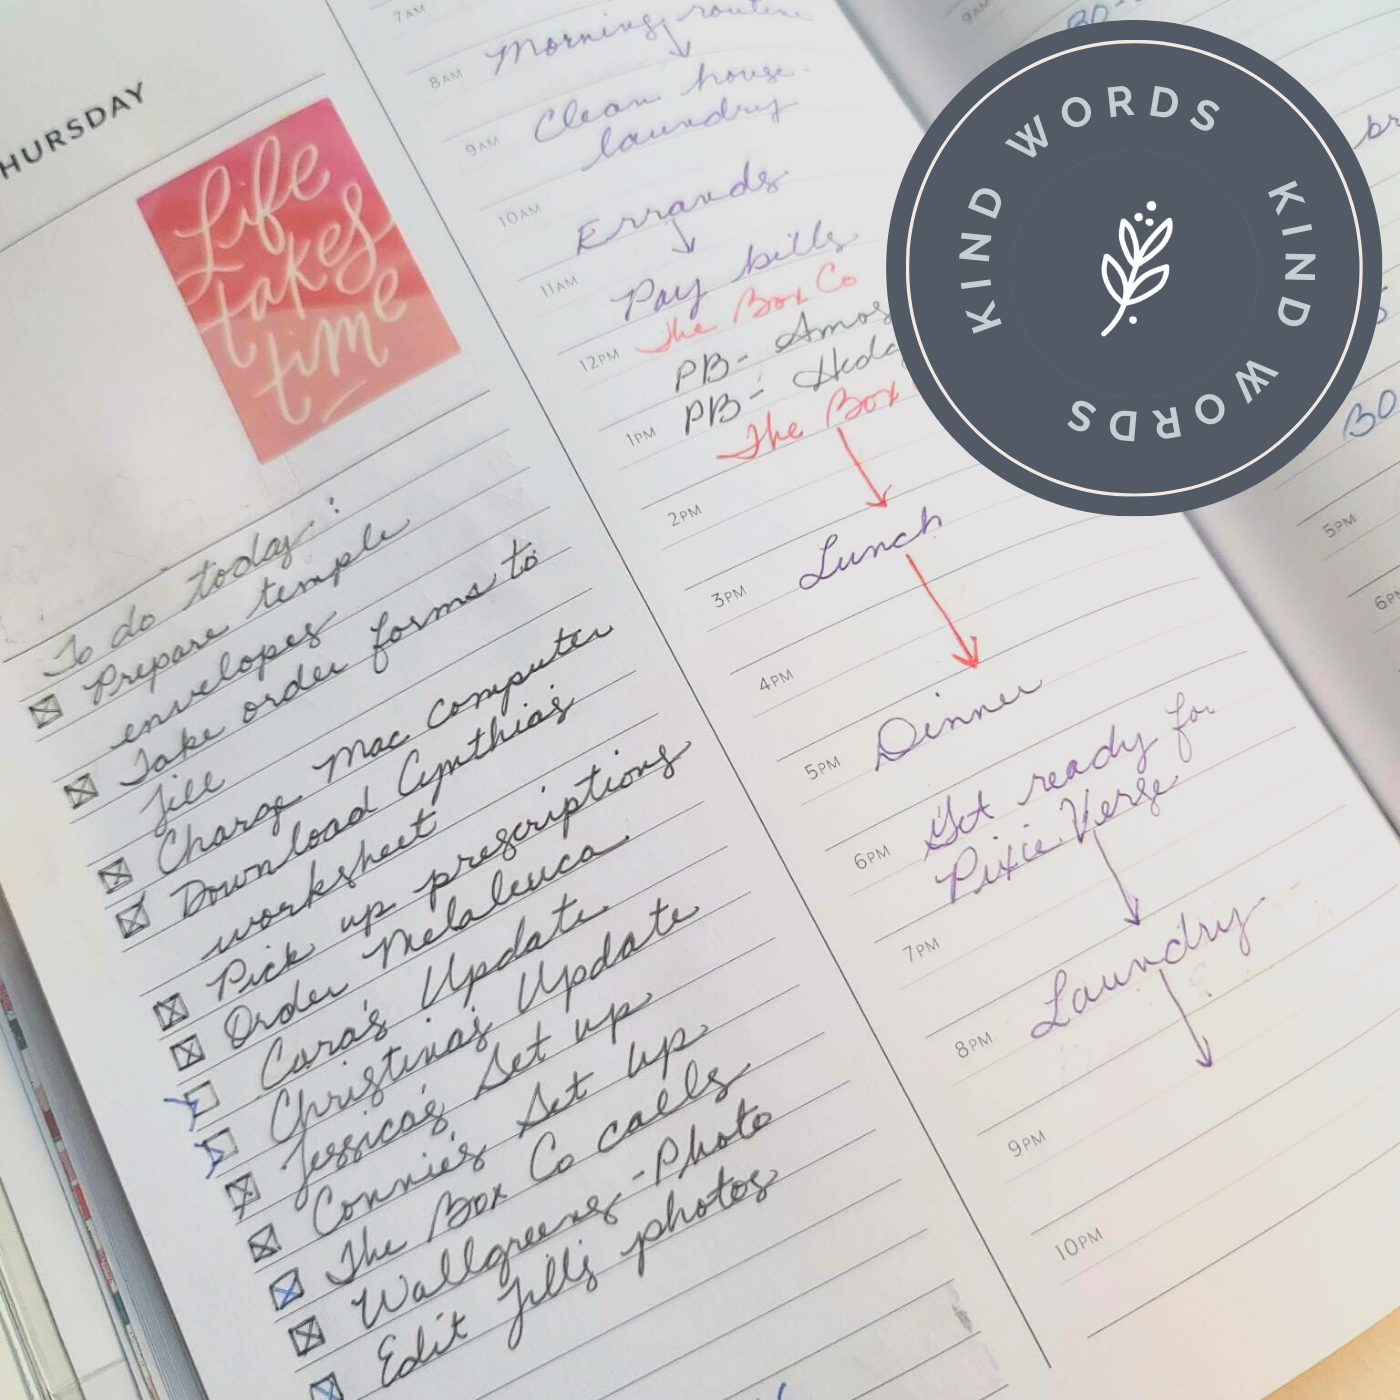 HURSDAY
Life
takes
time
To do today:
Prepare temple
envelopes
Take order forms to
Jill
Charge Mac Computer
Download Cynthias
worksheet
Pick up prescriptions
Order Melaleuca
Cara's Update
Christina's Update
Jessica's Set up
Connie's Set Up
The Box Co calls
Wallgreens-Photo
Edit Jill's photos
7AM
Morning routine
8AM
Clean house
9AM
laundry
10AM
Errands
11AM
Pay bills
The Box Co
12PM
PB- Amos
PB-
1PM
The Box
2PM
Lunch
3PM
4PM
Dinner
5PM
Get ready for
6PM
Pixie Verse
7PM
Laundry
8PM
9PM
10PM
9AM
BO-
KIND WORDS
KIND WORDS
br
BO
5PM
6PM